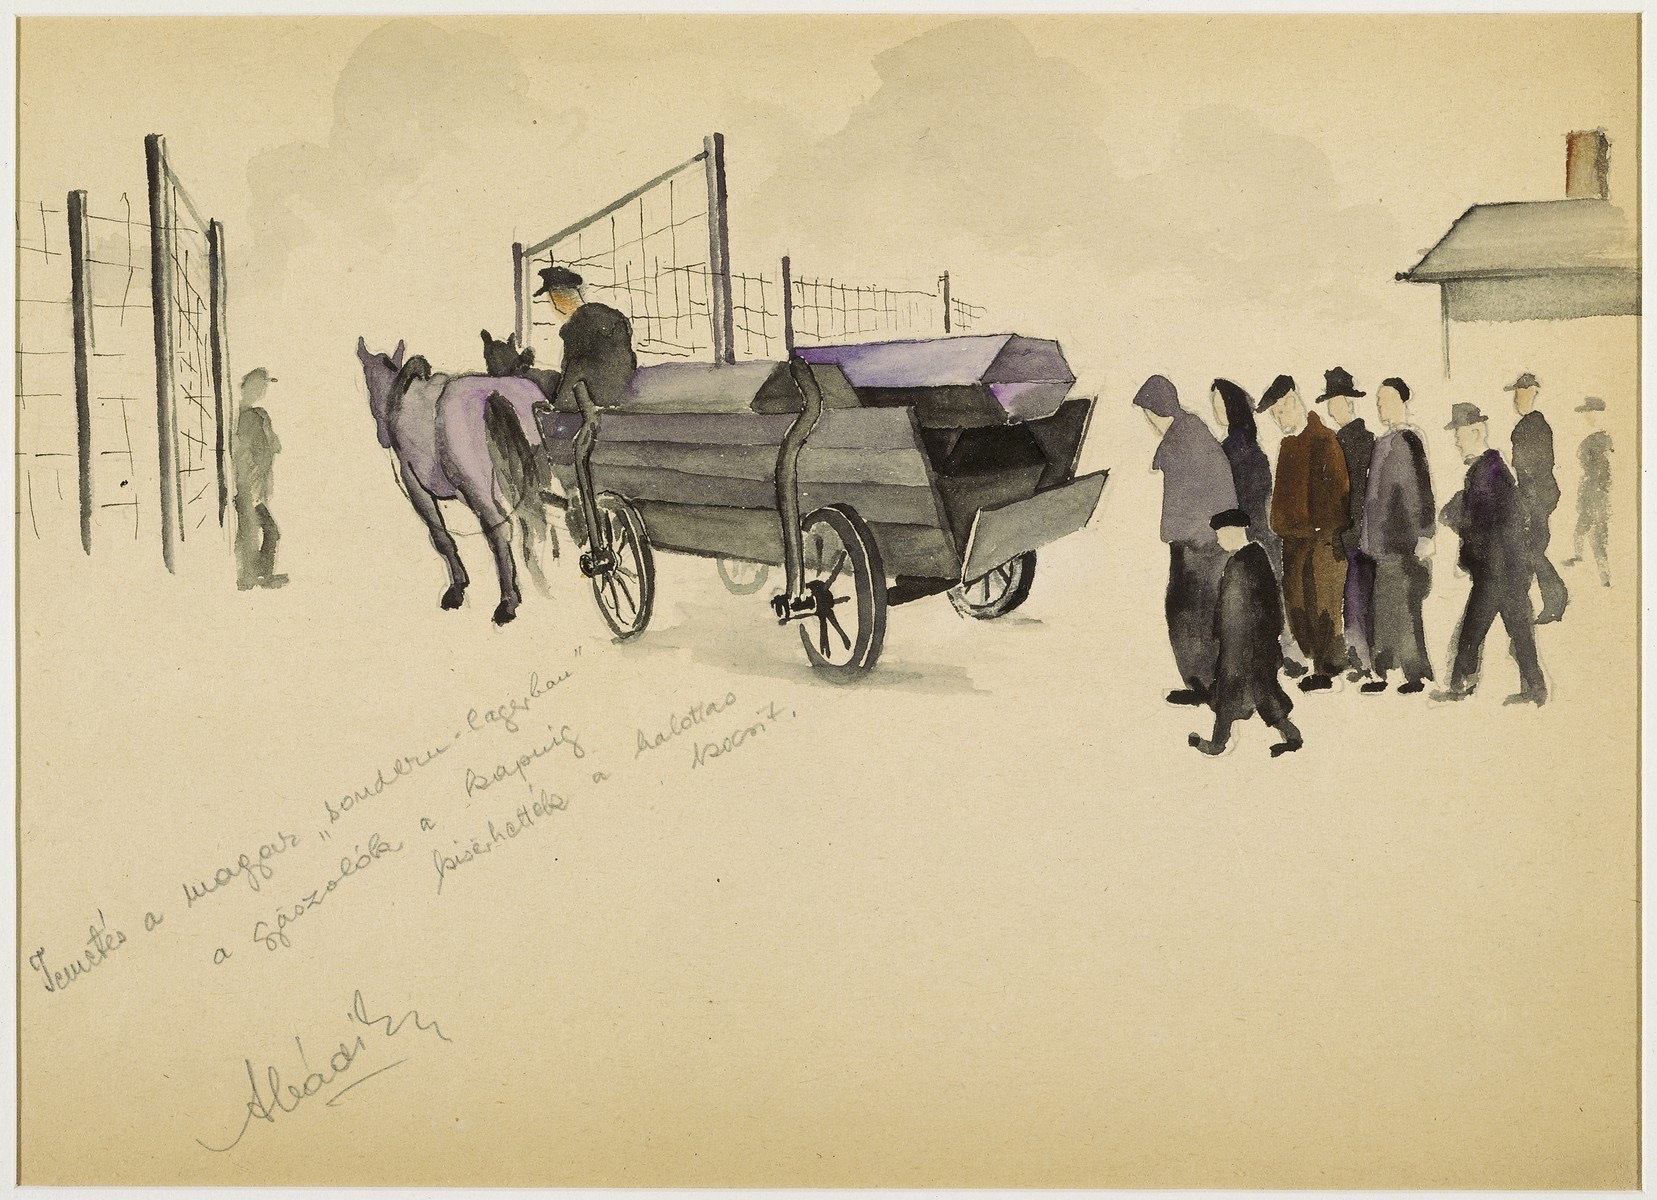 Temetés a magyar „sondern-lagerban"
a gyászolók a kapuig
kisérhették a halottas
kocsit.
Abádi Er